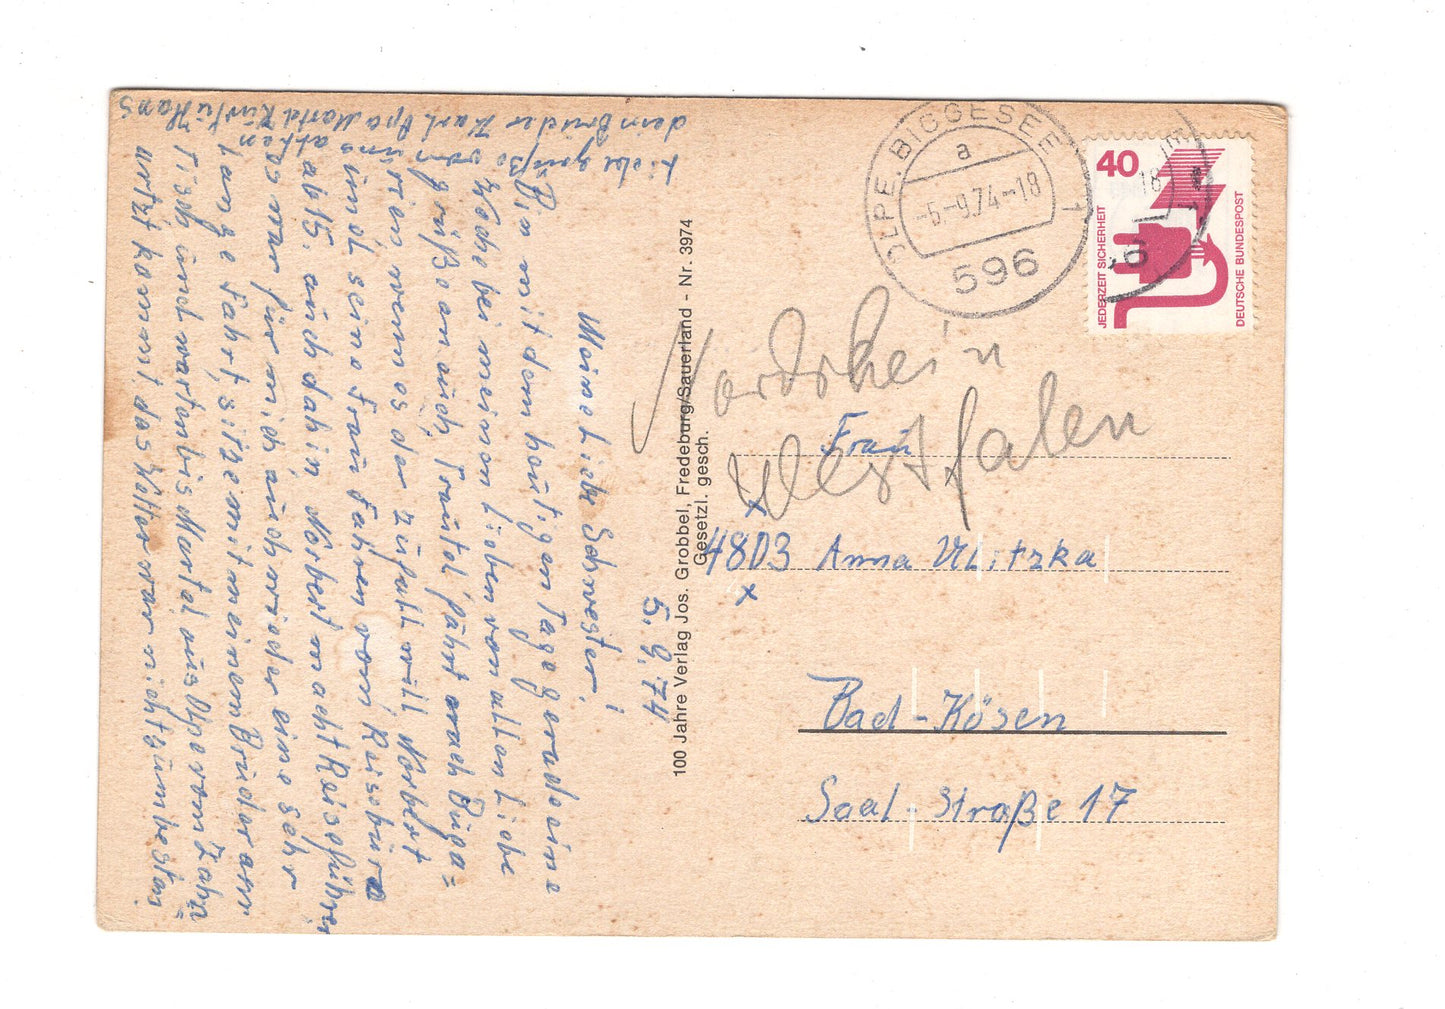 5.9.74
Meine Liebe Schwester!
Bin mit dem heutigen Tage gerade eine
Woche bei meinen Lieben von allen Liebe
grüße an euch, Trautel fährt nach Büga=
rien wenn es der zufall will, Norbert
und seine Frau fahren vom Reisebüro
ab 15. auch dahin, Norbert macht Reiseführer
es war für mich auch wieder eine sehr
lange Fahrt, sitze mit meinem Bruder am
Tisch und warten bis Martel aus Olpe vom Zahn=
artzt kommt, das Wetter war nicht zum besten
Liebe grüße von uns allen
dein Bruder Karl Opa Martel Hans
100 Jahre Verlag Jos. Grobbel, Fredeburg/Sauerland - Nr. 3974
Gesetzl. gesch.
OLPE, BIGGESEE
a
-5.-9.74-18
1
596
40
JEDERZEIT SICHERHEIT
DEUTSCHE BUNDESPOST
18
Nordrhein
Westfalen
Frau
x
4803 Anna Ulitzka
x
Bad-Kösen
Saal-Straße 17